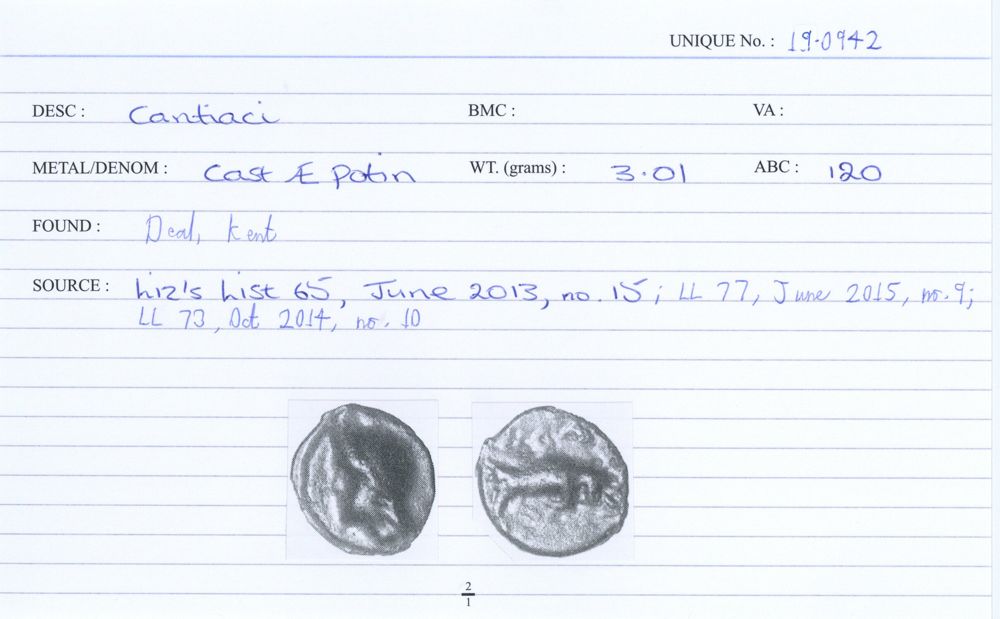 UNIQUE No. : 19.0942
DESC : Cantiaci BMC : VA :
METAL/DENOM : Cast Æ Potin WT. (grams) : 3.01 ABC : 120
FOUND : Deal, Kent
SOURCE : Liz's List 65, June 2013, no. 15; LL 77, June 2015, no. 9;
LL 73, Oct 2014, no. 10
2
1